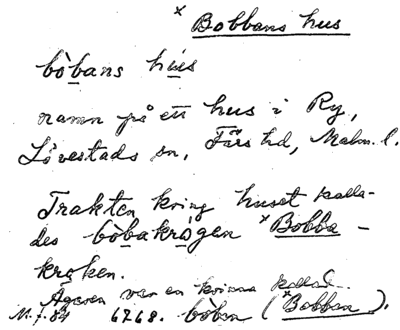 × Bobbans hus
bòbans hús
namn på ett hus i Ry,
Lövestads sn, Färs hd, Malm. l.
Trakten kring huset kalla-
des bòbakrågen ×Bobba-
kroken.
Ägaren var en kvinna kallad
M. 7. 84 6768. bòban (×Bobban).